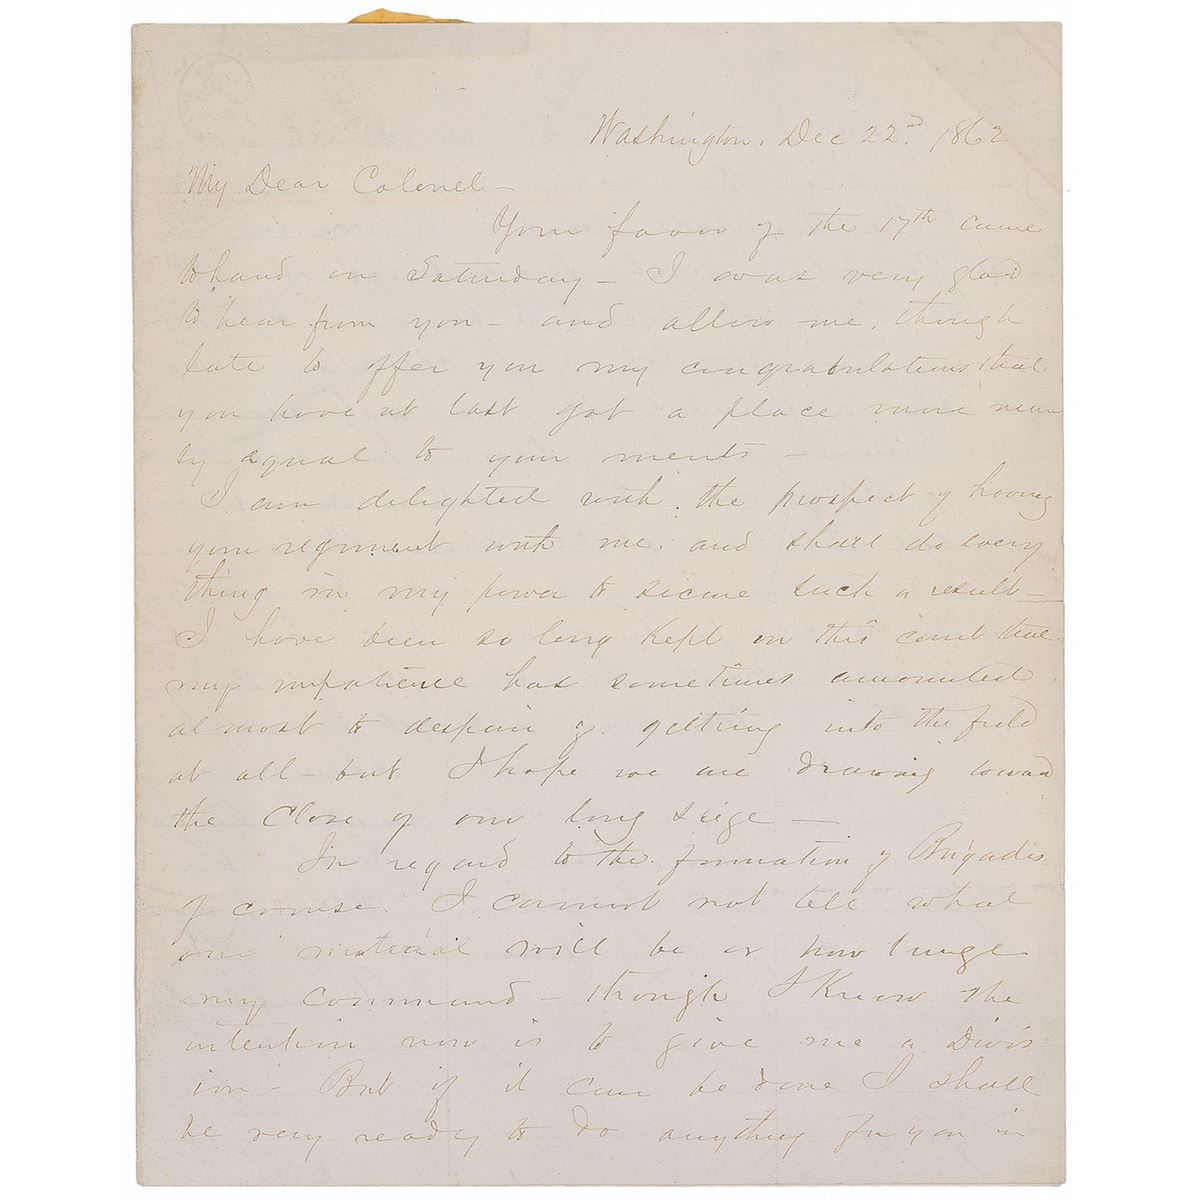 Washington, Dec 22nd. 1862
My Dear Colonel -
Your favor of the 17th came
to hand on Saturday - I was very glad
to hear from you - and allow me, though
late to offer you my congratulations that
you have at last got a place more near
ly equal to your merits -
I am delighted with the prospect of having
your regiment with me, and shall do every
thing in my power to secure such a result -
I have been so long kept on this court that
my impatience has sometimes amounted
almost to despair of getting into the field
at all - but I hope we are drawing toward
the close of our long siege -
In regard to the formation of Brigades
of course I cannot not tell what
our material will be or how large
my command - though I know the
intention now is to give me a Divis
ion - But if it can be done I shall
be very ready to do anything for you in